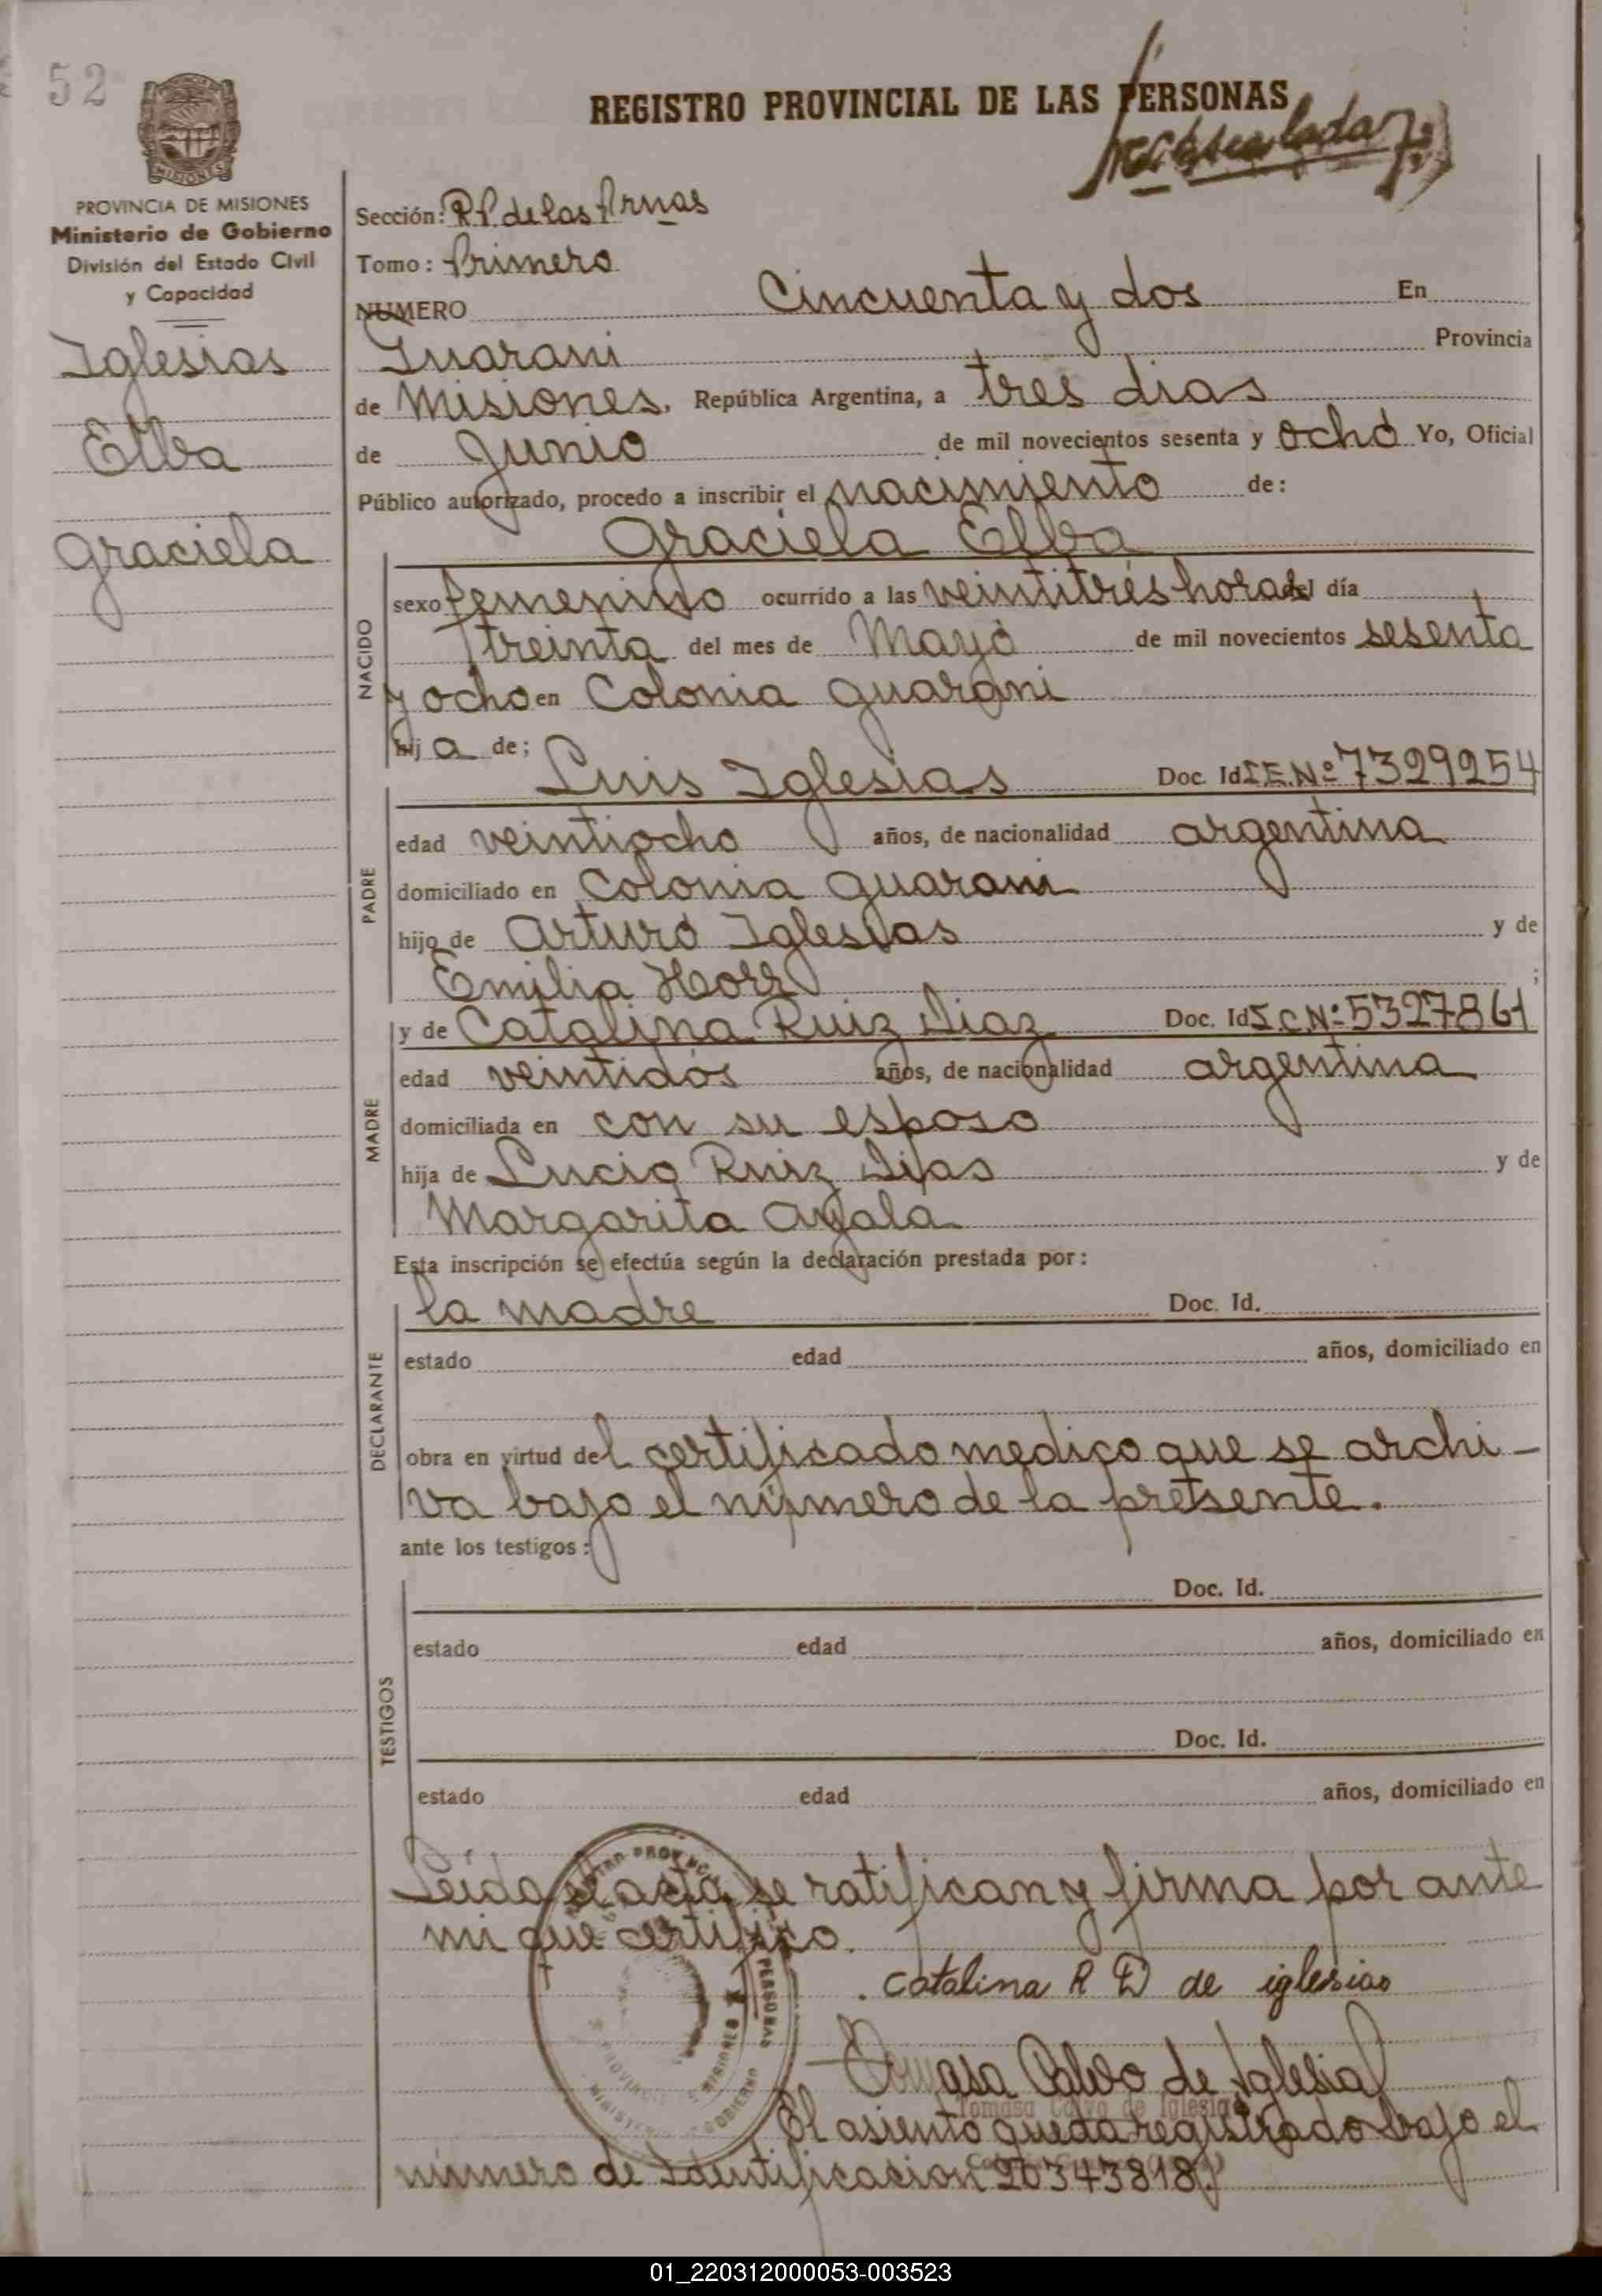 52
REGISTRO PROVINCIAL DE LAS PERSONAS
PROVINCIA DE MISIONES
Ministerio de Gobierno
División del Estado Civil
y Capacidad
Iglesias
Elba
Graciela
Sección: R.P. de las
Tomo: Primero
NUMERO Cincuenta y dos En
Guarani Provincia
de Misiones. República Argentina, a tres dias
de Junio de mil novecientos sesenta y ocho Yo, Oficial
Público autorizado, procedo a inscribir el nacimiento de:
Graciela Elba
NACIDO
sexo femenino ocurrido a las veintitrés horas del día
treinta del mes de Mayo de mil novecientos sesenta
y ocho en Colonia Guarani
hija de;
PADRE
Luis Iglesias Doc. Id. No 7329254
edad veintiocho años, de nacionalidad argentina
domiciliado en Colonia Guarani
hijo de Arturo Iglesias y de
Emilia ;
MADRE
y de Catalina Ruiz Diaz Doc. Id. No 5327861
edad veintidos años, de nacionalidad argentina
domiciliada en con su esposo
hija de Lucio Ruiz Dias y de
Margarita Ayala
Esta inscripción se efectúa según la declaración prestada por:
DECLARANTE
la madre Doc. Id.
estado edad años, domiciliado en
obra en virtud del certificado medico que se archi-
va bajo el número de la presente.
ante los testigos:
TESTIGOS
Doc. Id.
estado edad años, domiciliado en
Doc. Id.
estado edad años, domiciliado en
Leida el acta, se ratifican y firma por ante
mi que certifico.
Catalina R D de iglesias
Tomasa Calvo de Iglesias
Tomasa Calvo de Iglesias
El asiento queda registrado bajo el
número de Identificacion 20343818.
01_220312000053-003523